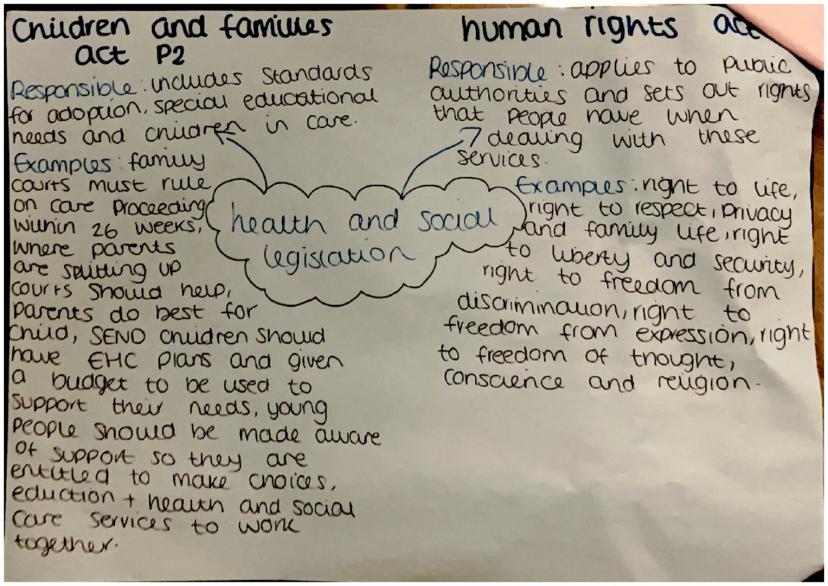 Children and families
act P2
Responsible: includes standards
for adoption, special educational
needs and children in care.
Examples: family
courts must rule
on care proceeding
within 26 weeks,
where parents
are splitting up
courts should help,
parents do best for
child, SEND children should
have EHC plans and given
a budget to be used to
support their needs, young
people should be made aware
of support so they are
entitled to make choices,
eduction + health and social
care services to work
together.
health and social
legislation
human rights act
Responsible: applies to public
authorities and sets out rights
that people have when
dealing with these
services.
Examples: right to life,
right to respect, privacy
and family life, right
to liberty and security,
right to freedom from
discrimination, right to
freedom from expression, right
to freedom of thought,
conscience and religion.